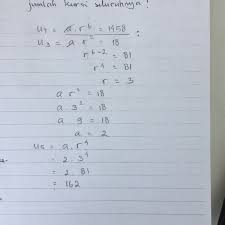 jumlah kursi seluruhnya !
U7 = a.r⁶ = 1458 :
U3 = a r² = 18
r⁶⁻² = 81
r⁴ = 81
r = 3
a r² = 18
a 3² = 18
a 9 = 18
a = 2
U5 = a.r⁴
= 2.3⁴
= 2.81
= 162